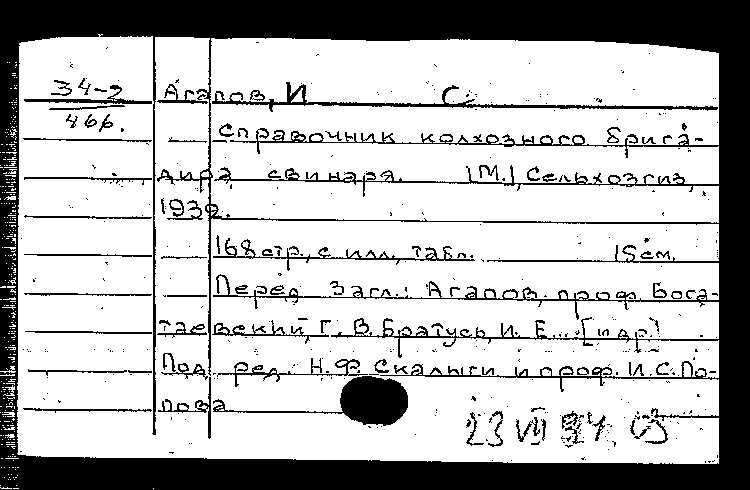 34-2 Агапов, И С.
466.
Справочник колхозного брига-
дира свинаря. [М.], Сельхозгиз,
1932.
168 стр., с илл., табл. 15см.
Перед загл.: Агапов, проф. Бога-
таевский, Г. В. Братусь, И. Е.... [и др.]
Под ред. Н.Ф. Скалыги и проф. И.С. По-
пова
23 VII 34.